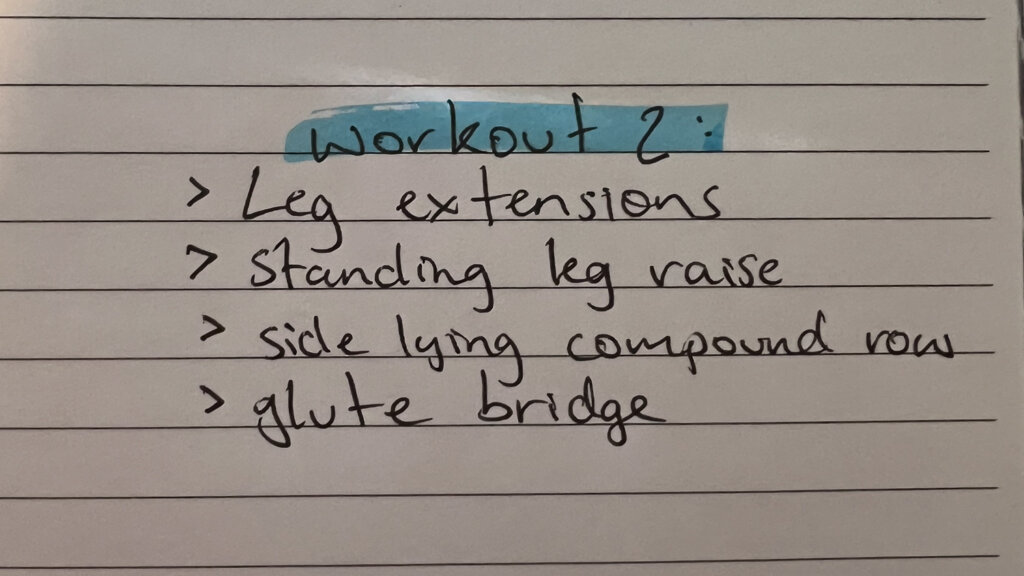 workout 2:
> Leg extensions
> standing leg raise
> side lying compound row
> glute bridge